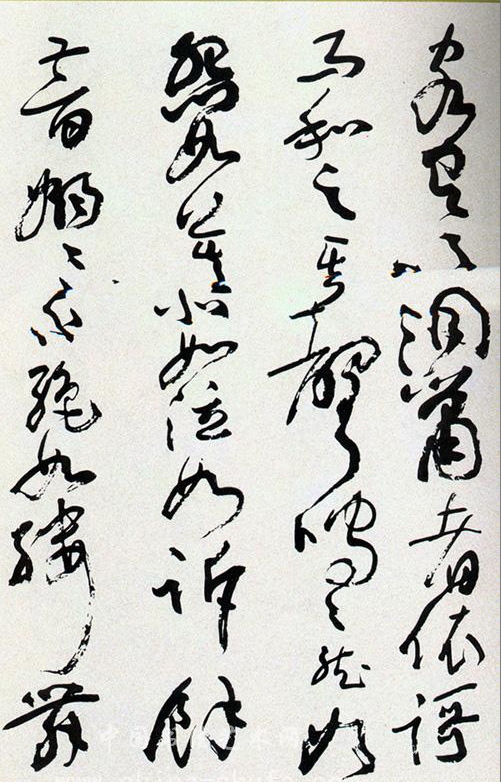 客有吹洞簫者依謌
而和之其聲嗚〻然如
怨如慕如泣如訴餘
音嫋〻不絕如縷舞